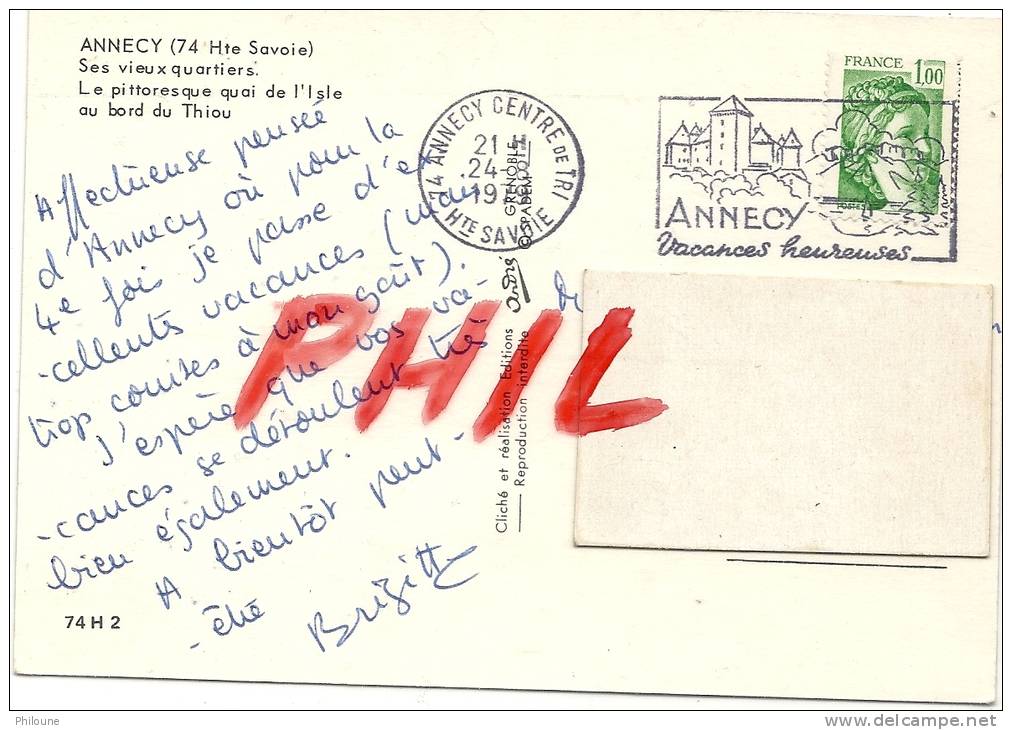 ANNECY (74 Hte Savoie)
Ses vieux quartiers.
Le pittoresque quai de l'Isle
au bord du Thiou
Affectueuse pensée
d'Annecy où pour la
4e fois je passe d'ex
-cellentes vacances (mais
trop courtes à mon goût).
J'espère que vos va-
-cances se déroulent très
bien également.
A bientôt peut-
-être
Brigitte
74 H 2
74 ANNECY CENTRE DE TRI
21 H
24-
19
HTE SAVOIE
FRANCE 1,00
POSTES
ANNECY
Vacances heureuses
Cliché et réalisation Editions andré
Reproduction interdite
GRENOBLE
© SPADEM
PHIL
Philoune
http://www.delcampe.net